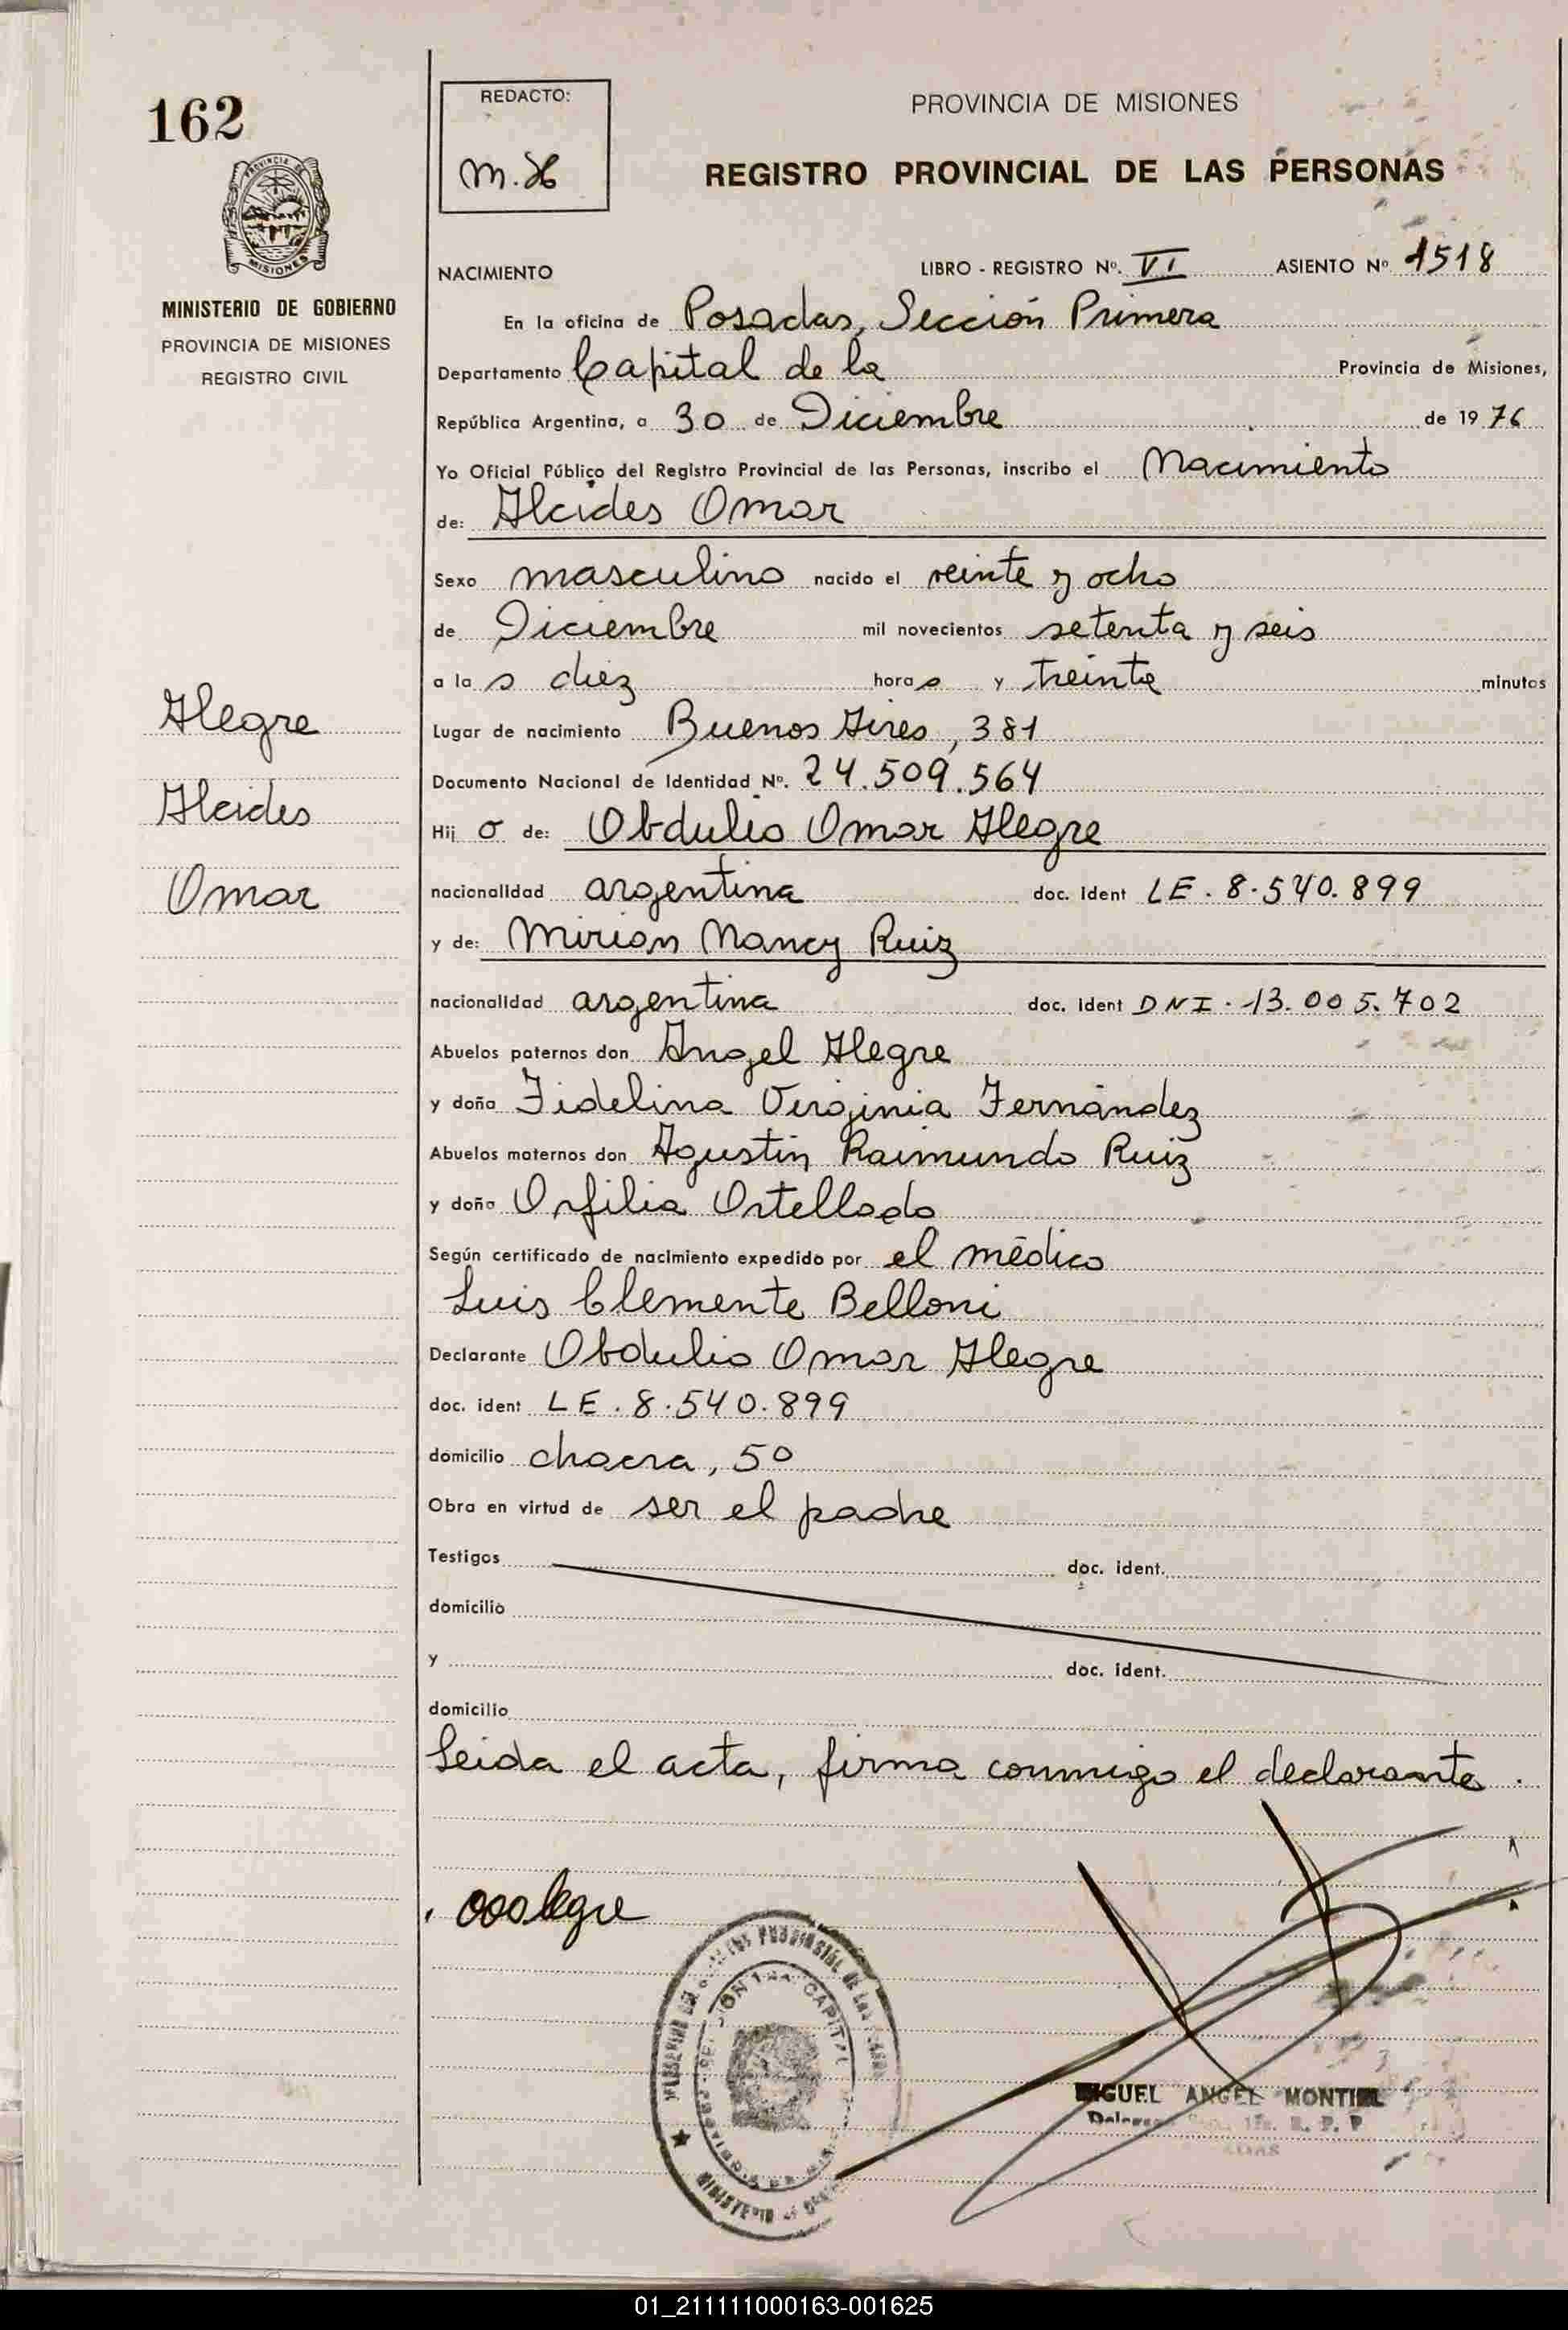 162
PROVINCIA DE
MISIONES
MINISTERIO DE GOBIERNO
PROVINCIA DE MISIONES
REGISTRO CIVIL
Alegre
Alcides
Omar
REDACTO:
PROVINCIA DE MISIONES
REGISTRO PROVINCIAL DE LAS PERSONAS
NACIMIENTO LIBRO - REGISTRO Nº. VI ASIENTO Nº 1518
En la oficina de Posadas, Sección Primera
Departamento Capital de la Provincia de Misiones,
República Argentina, a 30 de Diciembre de 1976
Yo Oficial Público del Registro Provincial de las Personas, inscribo el Nacimiento
de: Alcides Omar
Sexo masculino nacido el veinte y ocho
de Diciembre mil novecientos setenta y seis
a la s diez horas y treinta minutos
Lugar de nacimiento Buenos Aires, 381
Documento Nacional de Identidad Nº. 24.509.564
Hij o de: Obdulio Omar Alegre
nacionalidad argentina doc. ident LE. 8.540.899
y de: Mirian Nancy Ruiz
nacionalidad argentina doc. ident DNI. 13.005.702
Abuelos paternos don Angel Alegre
y doña Fidelina Virginia Fernández
Abuelos maternos don Agustín Raimundo Ruiz
y doña Orfilia Ortellado
Según certificado de nacimiento expedido por el médico
Luis Clemente Belloni
Declarante Obdulio Omar Alegre
doc. ident LE. 8.540.899
domicilio chacra, 50
Obra en virtud de ser el padre
Testigos doc. ident.
domicilio
y doc. ident.
domicilio
Leida el acta, firma conmigo el declarante.
MIGUEL ANGEL MONTIEL
01_211111000163-001625